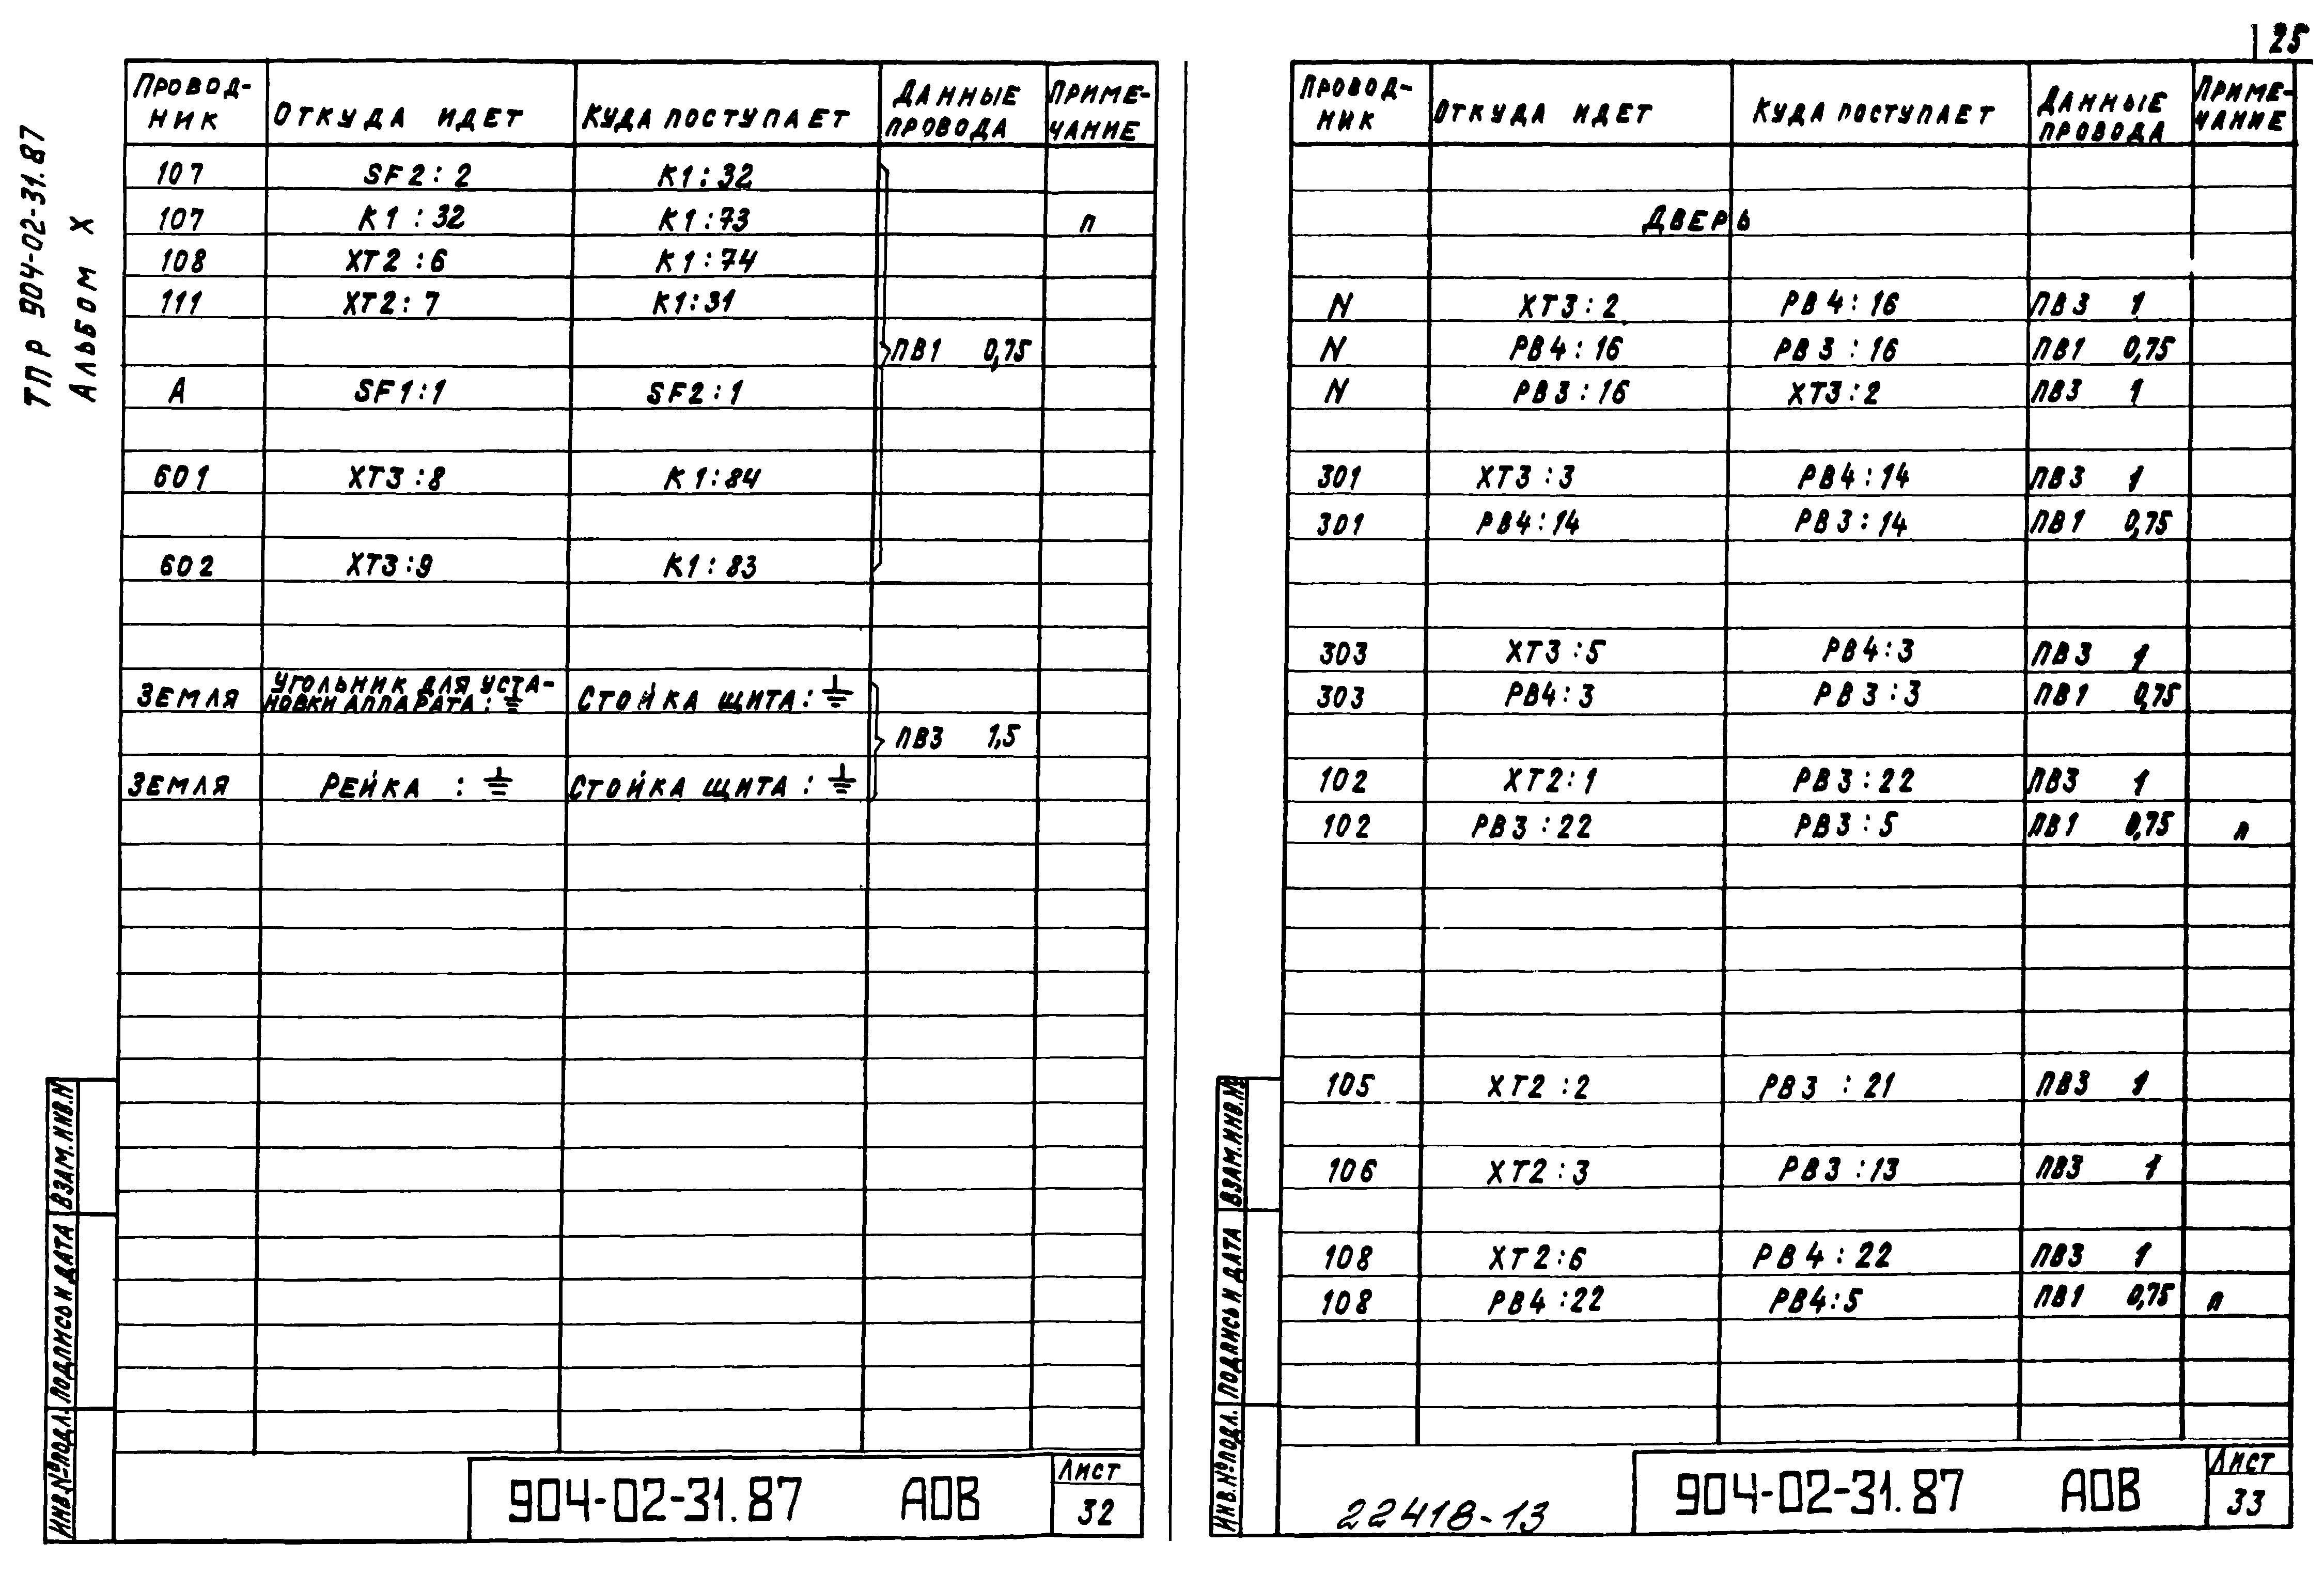 25
ТПР 904-02-31.87
Альбом X
Провод-
ник
Откуда идет
Куда поступает
Данные
провода
Приме-
чание
107 SF2:2 К1:32
107 К1:32 К1:73 п
108 ХТ2:6 К1:74
111 ХТ2:7 К1:31
ПВ1 0,75
А SF1:1 SF2:1
601 ХТ3:8 К1:84
602 ХТ3:9 К1:83
Земля Угольник для уста-
новки аппарата: ⏚ Стойка щита: ⏚
ПВ3 1,5
Земля Рейка : ⏚ Стойка щита: ⏚
Взам.инв.N
Подпись и дата
Инв.№подл.
904-02-31.87 АОВ
Лист
32
Провод-
ник
Откуда идет
Куда поступает
Данные
провода
Приме-
чание
Дверь
N ХТ3:2 РВ4:16 ПВ3 1
N РВ4:16 РВ3:16 ПВ1 0,75
N РВ3:16 ХТ3:2 ПВ3 1
301 ХТ3:3 РВ4:14 ПВ3 1
301 РВ4:14 РВ3:14 ПВ1 0,75
303 ХТ3:5 РВ4:3 ПВ3 1
303 РВ4:3 РВ3:3 ПВ1 0,75
102 ХТ2:1 РВ3:22 ПВ3 1
102 РВ3:22 РВ3:5 ПВ1 0,75 п
105 ХТ2:2 РВ3:21 ПВ3 1
106 ХТ2:3 РВ3:13 ПВ3 1
108 ХТ2:6 РВ4:22 ПВ3 1
108 РВ4:22 РВ4:5 ПВ1 0,75 п
Взам.инв.№
Подпись и дата
Инв.№подл.
22418-13
904-02-31.87 АОВ
Лист
33